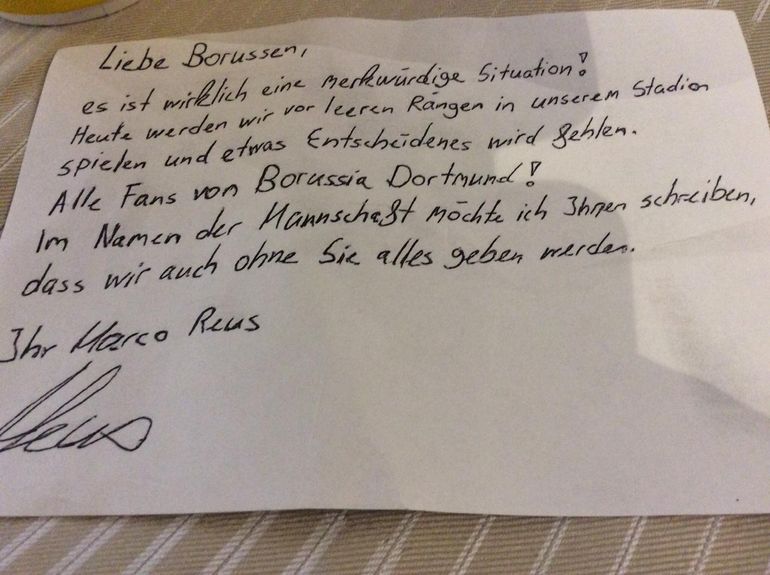 Liebe Borussen,
es ist wirklich eine merkwürdige Situation!
Heute werden wir vor leeren Rängen in unserem Stadion
spielen und etwas Entscheidenes wird fehlen.
Alle Fans von Borussia Dortmund!
Im Namen der Mannschaft möchte ich Ihnen schreiben,
dass wir auch ohne Sie alles geben werden.
Ihr Marco Reus
Reus